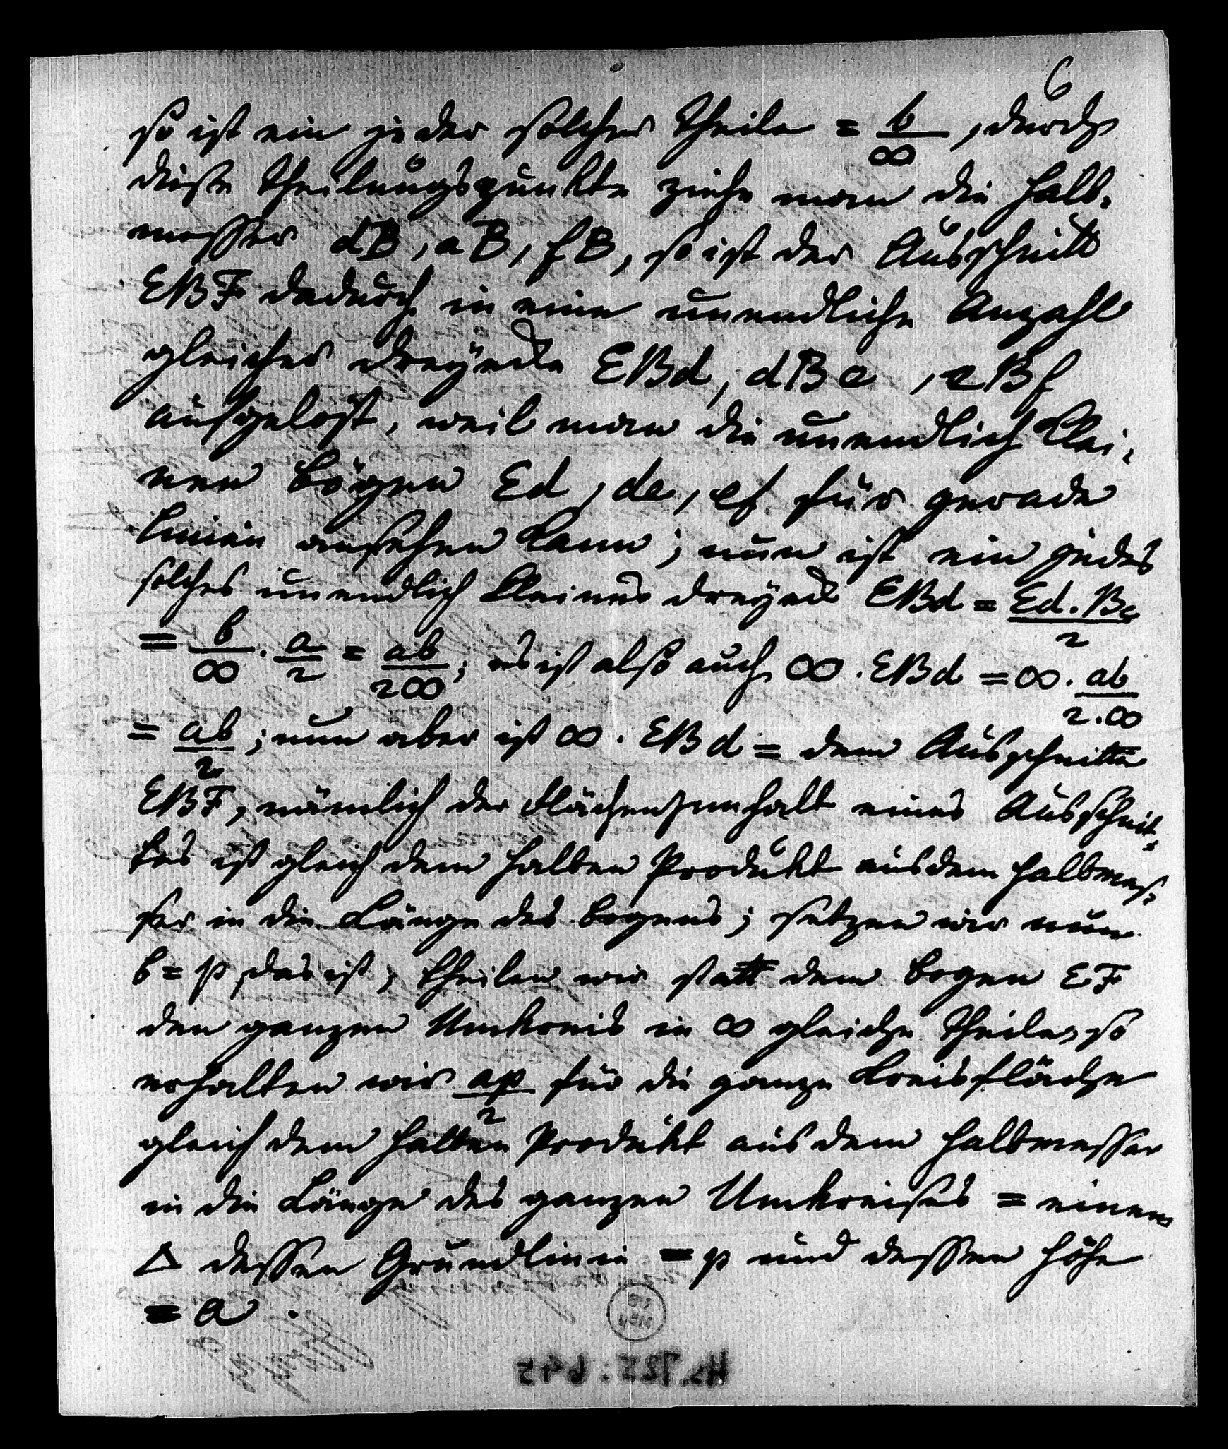 6
so ist ein jeder solcher Theile = b/∞, durch
diese Theilungspunkte ziehe man die Halb-
messer dB, eB, fB, so ist der Ausschnitt
EBF dadurch in eine unendliche Anzahl
gleicher Dreyecke EBd, dBe, eBf
aufgelöst, weil man die unendlich klei-
nen Bögen Ed, de, ef für gerade
Linien ansehen kann; nun ist ein jedes
solches unendlich kleines Dreyeck EBd = Ed.Be/2
= b/∞ . a/2 = ab/2∞; es ist also auch ∞.EBd = ∞. ab/2.∞
= ab/2; nun aber ist ∞.EBd = dem Ausschnitte
EBF, nämlich der Flächeninnhalt eines Ausschnit-
tes ist gleich dem halben Produkt aus dem Halbmes-
ser in die Länge des Bogens; setzen wir nun
b = p, das ist, theilen wir statt dem Bogen EF
den ganzen Umkreis in ∞ gleiche Theile, so
erhalten wir ap/2 für die ganze Kreisfläche
gleich dem halben Produkt aus dem Halbmesser
in die Länge des ganzen Umkreises = einem
Δ dessen Grundlinie = p und dessen Höhe
= a.